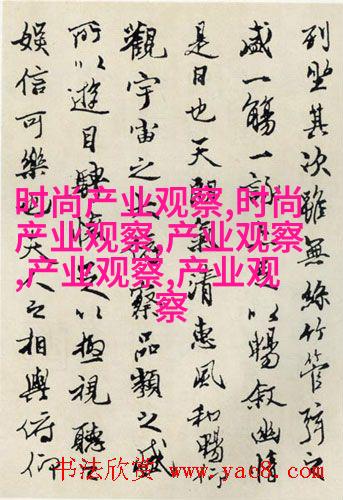 列坐其次雖無絲竹管弦之
盛一觴一詠以暢敘幽情
是日也天朗氣清惠風和暢仰
觀宇宙之察品類之盛
所以遊目騁懷足以極視聽之
娛信可樂也夫人之相與俯仰
时尚产业观察,时尚
产业观察,产业观察
,产业观察,产业观
察
书法欣赏 www.yac8.com